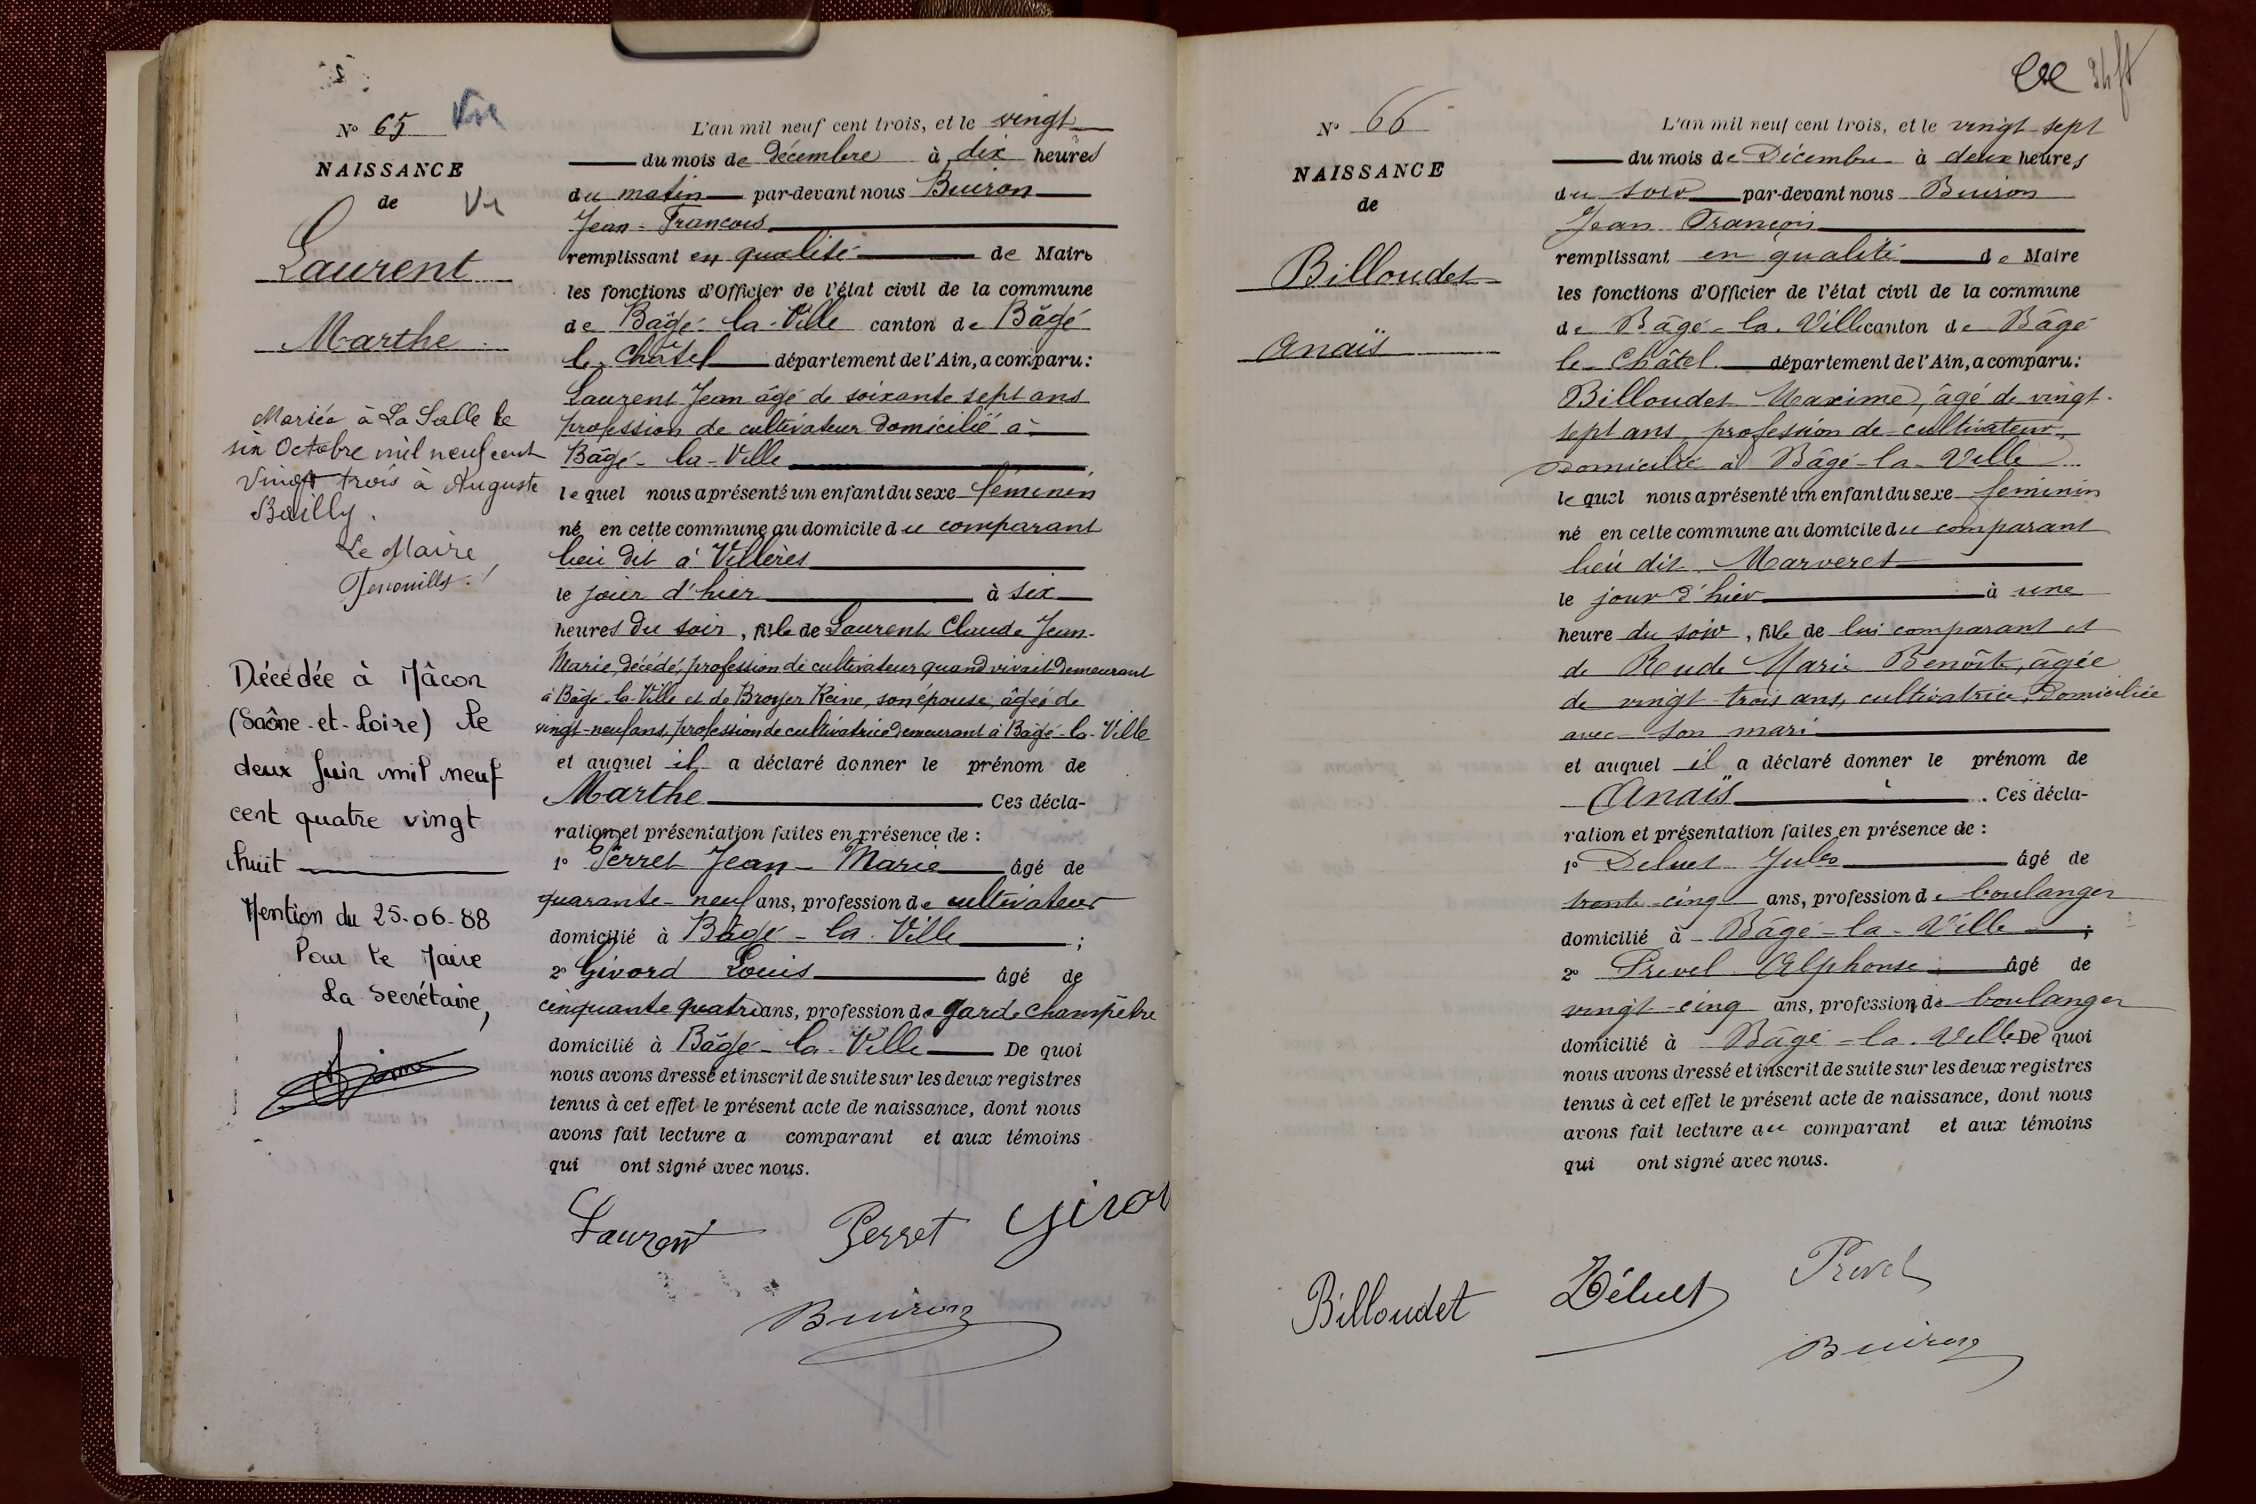 N° 65
NAISSANCE
de
Laurent
Marthe
Mariée à La Salle le
six Octobre mil neuf cent
Vingt trois à Auguste
Bailly.
Le Maire
Décédée à Mâcon
(Saône-et-Loire) le
deux Juin mil neuf
cent quatre vingt
huit
Mention du 25-06-88
Pour le Maire
La Secrétaire,
L'an mil neuf cent trois, et le vingt
du mois de Décembre à dix heures
du matin par-devant nous Buiron
Jean-Francois
remplissant en qualité de Maire
les fonctions d'Officier de l'état civil de la commune
de Bâgé-la-Ville canton de Bâgé
le Châtel département de l'Ain, a comparu:
Laurent Jean âgé de soixante sept ans
profession de cultivateur domicilié à
Bâgé-la-Ville
lequel nous a présenté un enfant du sexe féminin
né en cette commune au domicile du comparant
lieu dit à Villères
le jour d'hier à six
heures du soir, fille de Laurent Claude Jean-
Marie, décédé, profession de cultivateur quand vivait demeurant
à Bâgé-la-Ville et de Broyer Reine, son épouse, âgée de
vingt-neuf ans, profession de cultivatrice demeurant à Bâgé-la-Ville
et auquel il a déclaré donner le prénom de
Marthe Ces décla-
ration et présentation faites en présence de :
1° Perret Jean-Marie âgé de
quarante-neuf ans, profession de cultivateur
domicilié à Bâgé-la-Ville ;
2° Givord Louis âgé de
cinquante quatre ans, profession de garde champêtre
domicilié à Bâgé-la-Ville De quoi
nous avons dressé et inscrit de suite sur les deux registres
tenus à cet effet le présent acte de naissance, dont nous
avons fait lecture a comparant et aux témoins
qui ont signé avec nous.
Laurent Perret Givor
Buiron
N° 66
NAISSANCE
de
Billoudet
Anaïs
L'an mil neuf cent trois, et le vingt sept
du mois de Décembre à deux heures
du soir par-devant nous Buiron
Jean François
remplissant en qualité de Maire
les fonctions d'Officier de l'état civil de la commune
de Bâgé-la-Ville canton de Bâgé
le Châtel département de l'Ain, a comparu:
Billoudet Maxime, âgé de vingt-
sept ans, profession de cultivateur,
Domicilié à Bâgé-la-Ville
lequel nous a présenté un enfant du sexe feminin
né en cette commune au domicile du comparant
lieu dit Marveret
le jour d'hier à une
heure du soir, fille de lui comparant et
de Rude Marie Benoîte, âgée
de vingt-trois ans, cultivatrice, Domiciliée
avec son mari
et auquel il a déclaré donner le prénom de
Anaïs . Ces décla-
ration et présentation faites en présence de :
1° Deluet Jules âgé de
trente-cinq ans, profession de boulanger
domicilié à Bâgé-la-Ville ;
2° Prevel Alphonse âgé de
vingt-cinq ans, profession de boulanger
domicilié à Bâgé-la-Ville De quoi
nous avons dressé et inscrit de suite sur les deux registres
tenus à cet effet le présent acte de naissance, dont nous
avons fait lecture au comparant et aux témoins
qui ont signé avec nous.
Billoudet Déluet Prevel
Buiron